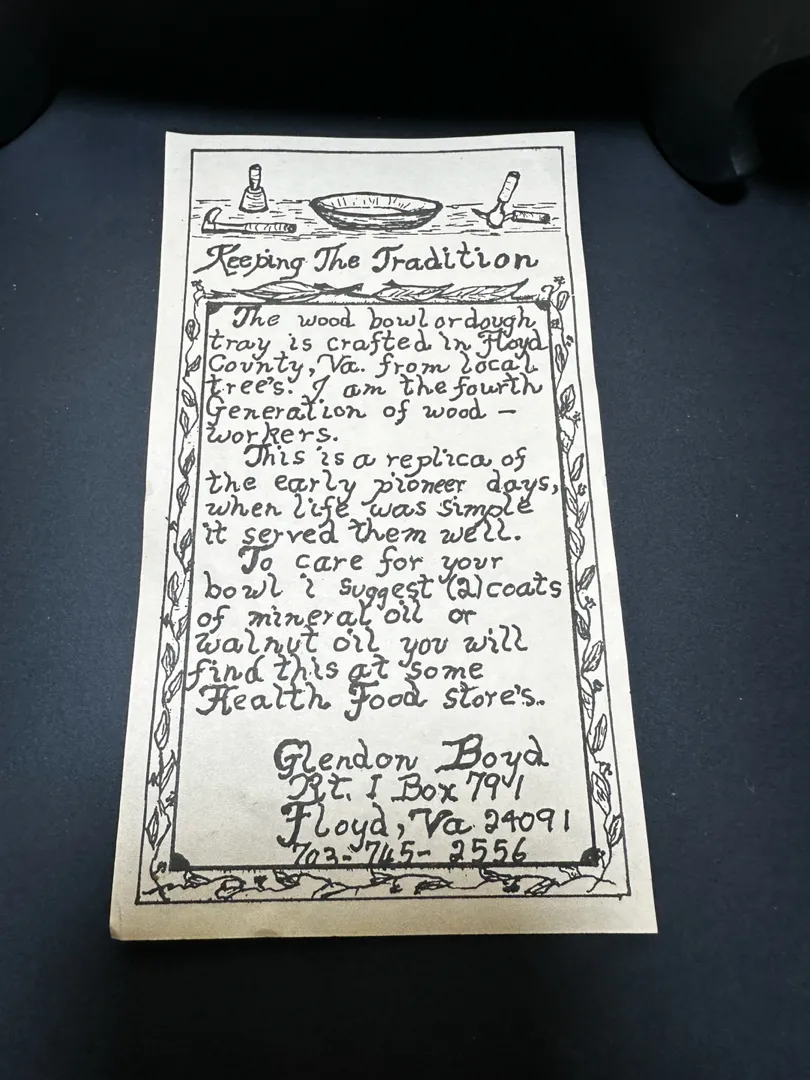 Keeping The Tradition
The wood bowl or dough
tray is crafted in Floyd
County, Va. from local
tree's. I am the fourth
Generation of wood -
workers.
This is a replica of
the early pioneer days,
when life was simple
it served them well.
To care for your
bowl i suggest (2) coats
of mineral oil or
walnut oil you will
find this at some
Health Food store's.
Glendon Boyd
Rt. 1 Box 791
Floyd, Va 24091
703-745-2556